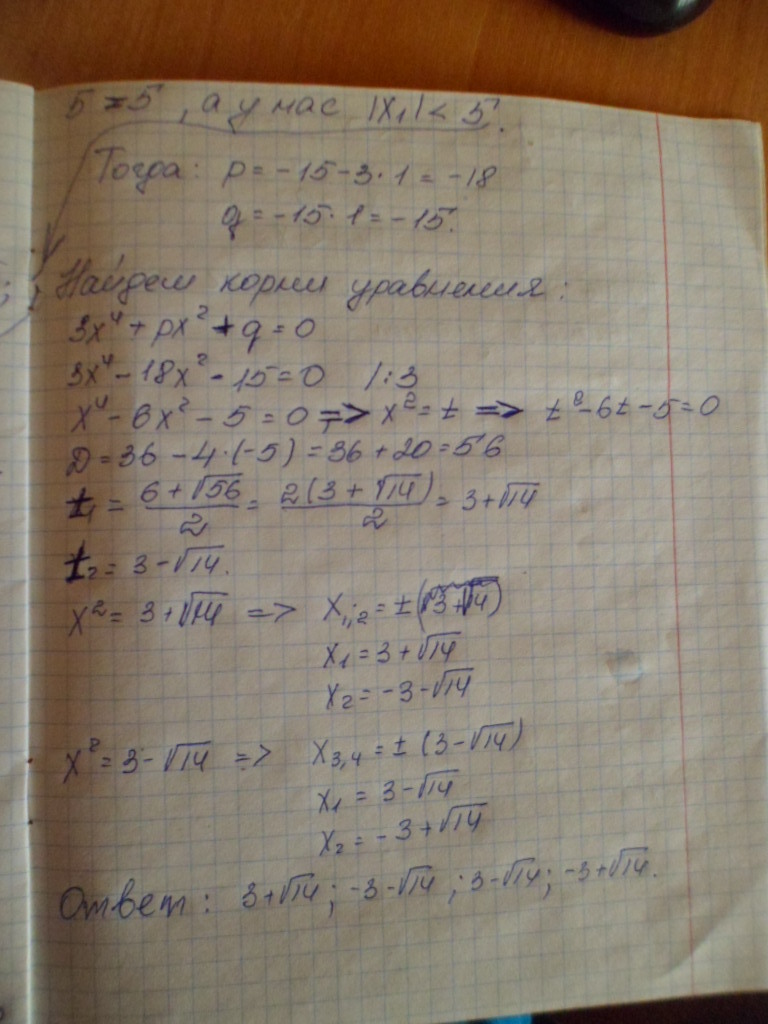 5 = 5, а у нас |x₁| < 5.
Тогда: p = -15 - 3·1 = -18
q = -15·1 = -15.
Найдем корни уравнения:
3x⁴ + px² + q = 0
3x⁴ - 18x² - 15 = 0 /:3
x⁴ - 6x² - 5 = 0 => x² = t => t² - 6t - 5 = 0
D = 36 - 4·(-5) = 36 + 20 = 56
t₁ = (6 + √56)/2 = 2(3 + √14)/2 = 3 + √14
t₂ = 3 - √14.
x² = 3 + √14 => x₁,₂ = ± (√3 + √14)
x₁ = 3 + √14
x₂ = -3 - √14
x² = 3 - √14 => x₃,₄ = ± (3 - √14)
x₁ = 3 - √14
x₂ = -3 + √14
Ответ: 3 + √14; -3 - √14; 3 - √14; -3 + √14.